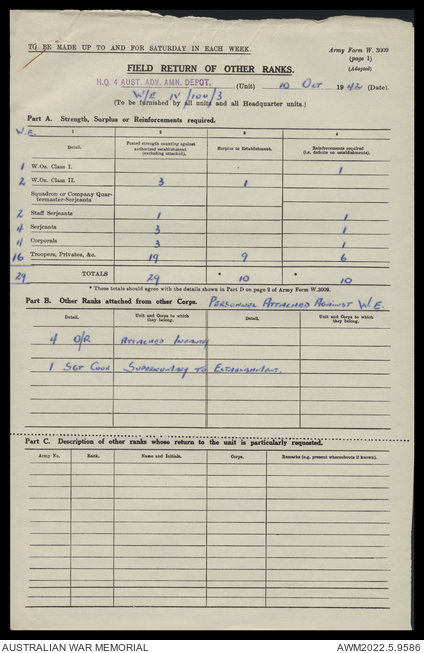 TO BE MADE UP TO AND FOR SATURDAY IN EACH WEEK.
Army Form W. 3009
(page 1)
(Adapted)
FIELD RETURN OF OTHER RANKS.
H.Q. 4 AUST. ADV. AMN. DEPOT. (Unit) 10 Oct 1942 (Date).
W/E IV/100/3
(To be furnished by all units and all Headquarter units.)
Part A. Strength, Surplus or Reinforcements required.
W.E. 1 2 3 4
Detail. Posted strength counting against authorized establishment (excluding attached). Surplus to Establishment. Reinforcements required (i.e. deficits on establishments).
1 W.Os. Class I. 1
2 W.Os. Class II. 3 1
Squadron or Company Quar-
termaster-Serjeants
2 Staff Serjeants 1 1
4 Serjeants 3 1
4 Corporals 3 1
16 Troopers, Privates, &c. 19 9 6
29 TOTALS 29 * 10 * 10
* These totals should agree with the details shown in Part D on page 2 of Army Form W.3009.
Part B. Other Ranks attached from other Corps. Personnel Attached Against W.E.
Detail. Unit and Corps to which they belong. Detail. Unit and Corps to which they belong.
4 O/R Attached Infantry
1 Sgt Cook Supernumary to Establishment.
Part C. Description of other ranks whose return to the unit is particularly requested.
Army No. Rank. Name and Initials. Corps. Remarks (e.g. present whereabouts if known).
AUSTRALIAN WAR MEMORIAL AWM2022.5.9586